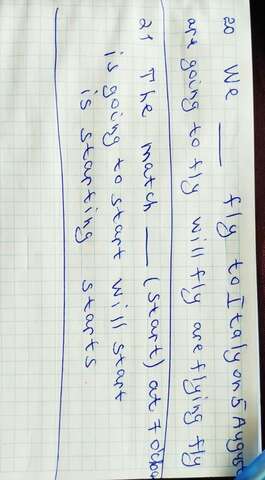 20 We ___ fly to Italy on 5 August
are going to fly will fly are flying fly
21 The match ___ (start) at 7 o'clock
is going to start will start
is starting starts